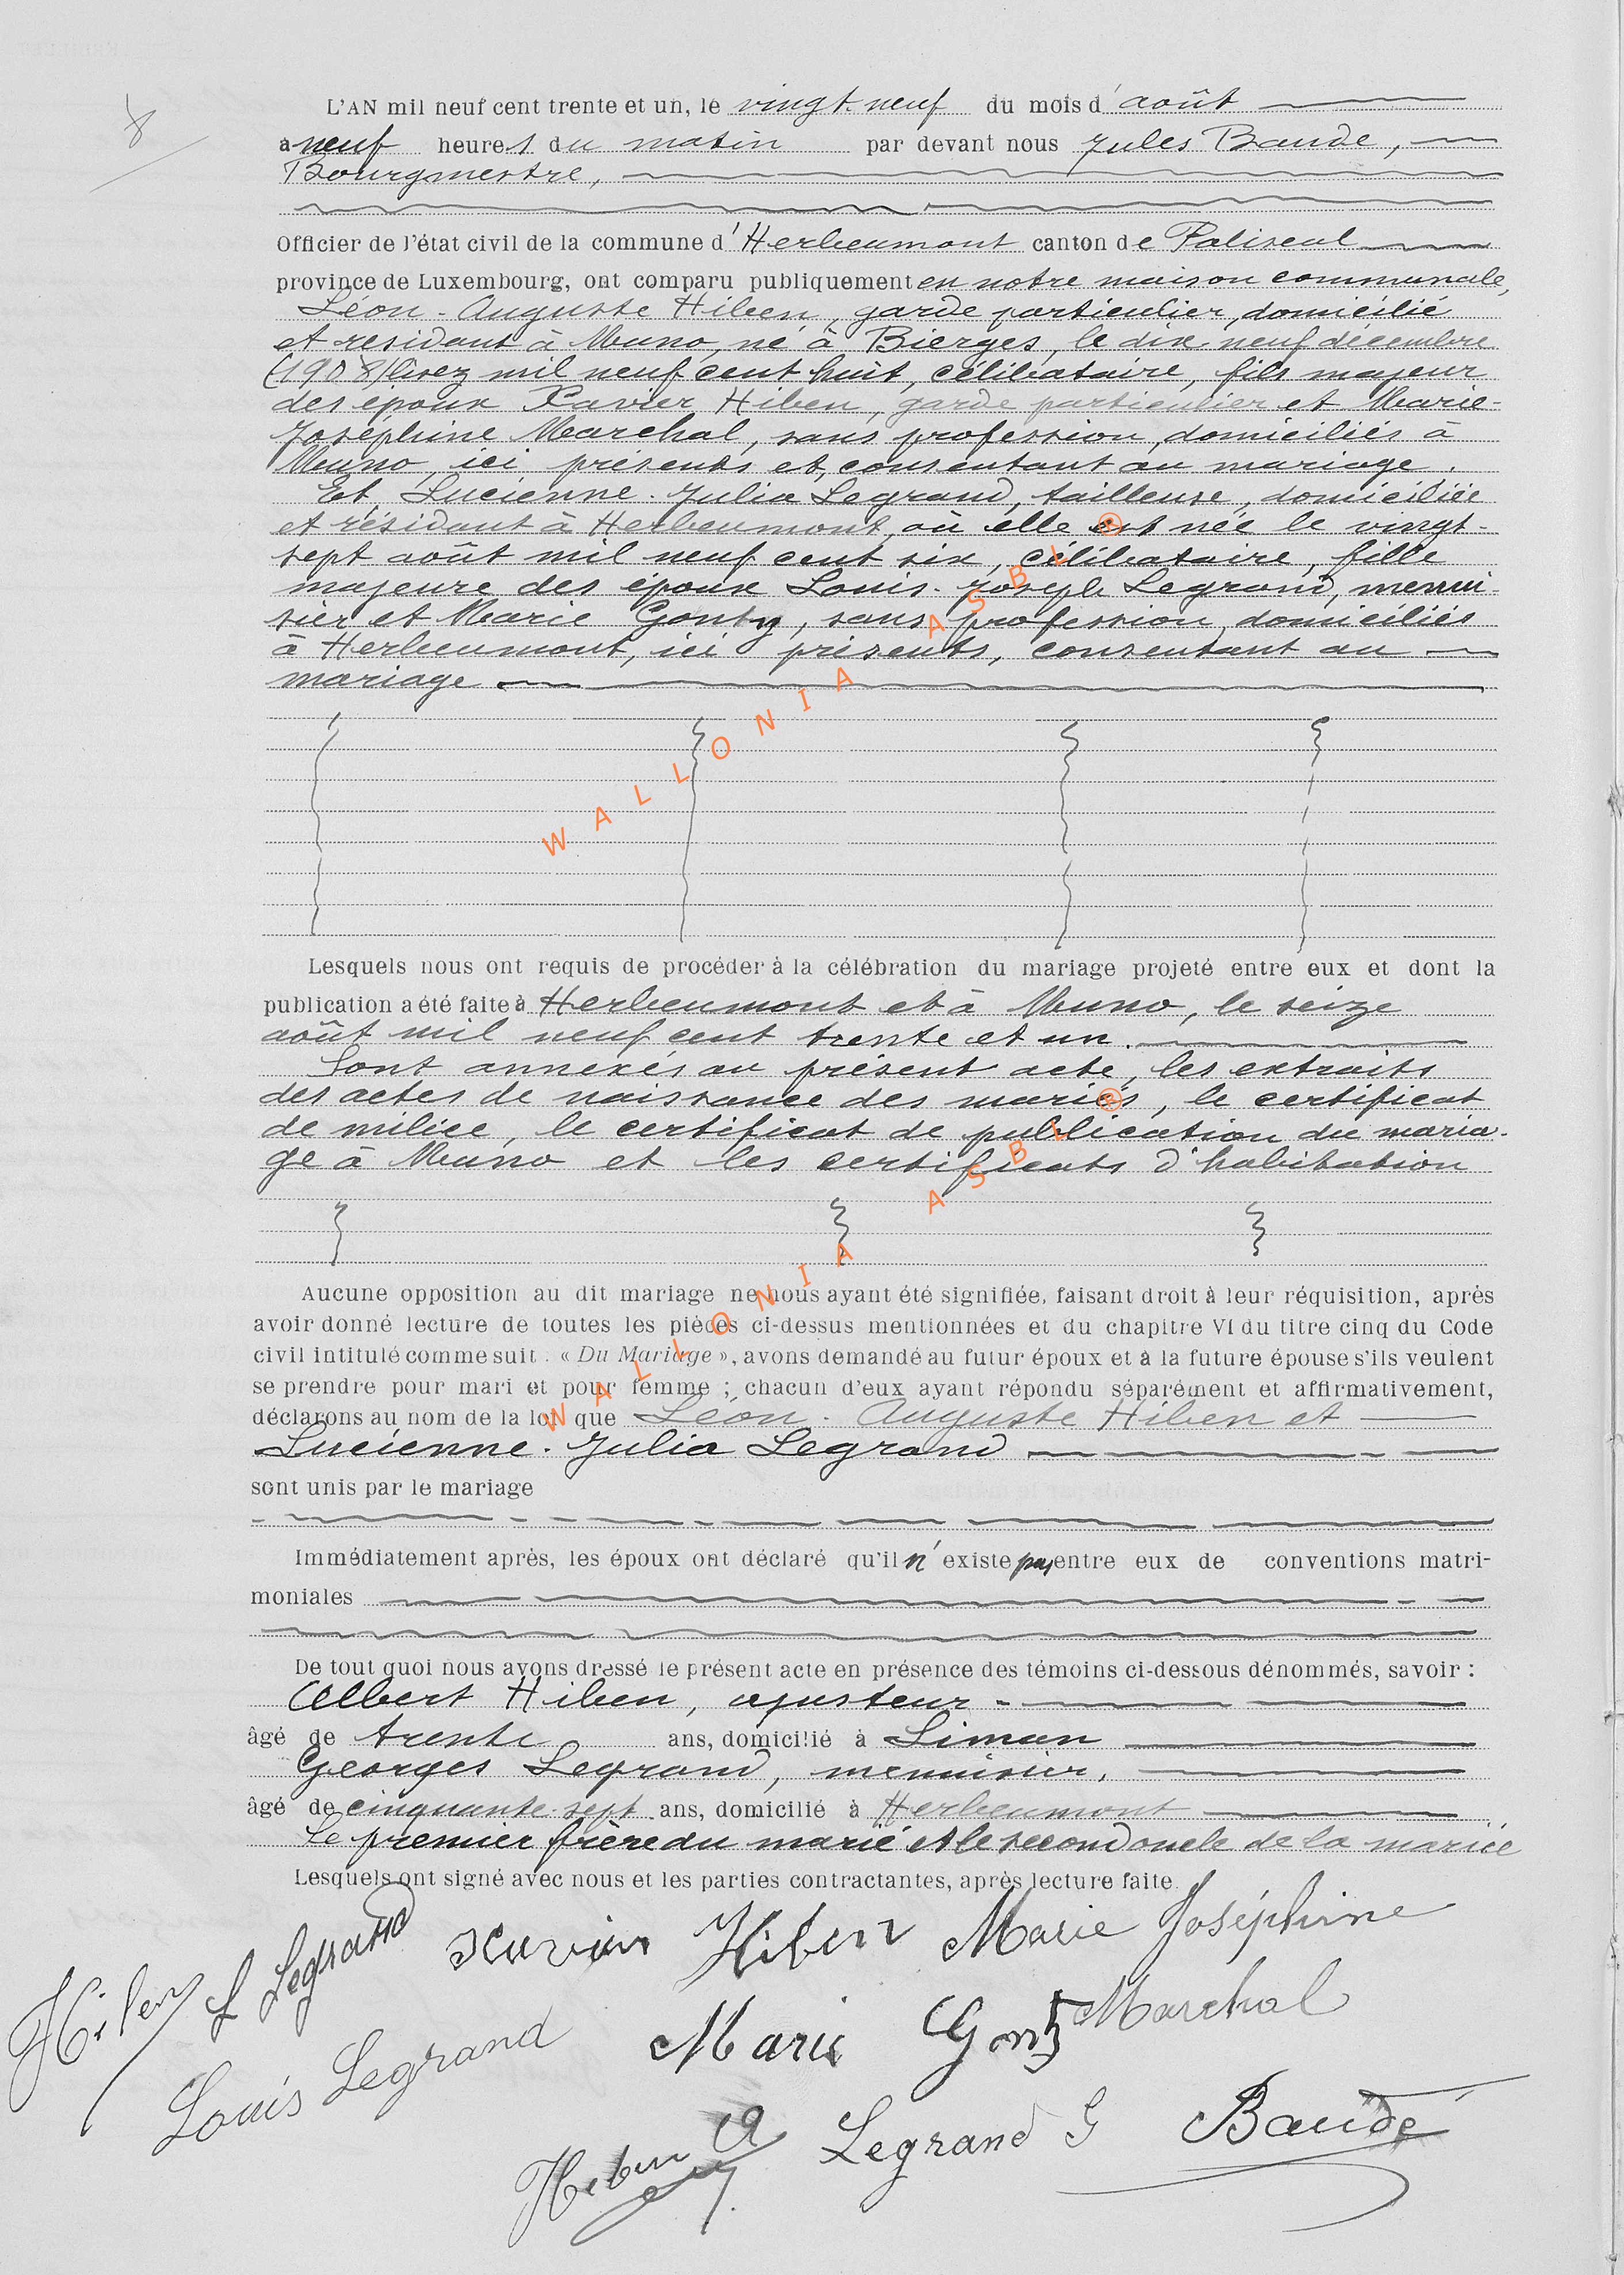 8
L'AN mil neuf cent trente et un, le vingt-neuf du mois d'août
à neuf heures du matin par devant nous Jules Baude,
Bourgmestre,
Officier de l'état civil de la commune d'Herbeumont canton de Paliseul
province de Luxembourg, ont comparu publiquement en notre maison communale,
Léon-Auguste Hiben, garde particulier, domicilié
et résidant à Muno, né à Bierges, le dix neuf décembre
(1908) lisez mil neuf cent huit, célibataire, fils majeur
des époux Xavier Hiben, garde particulier et Marie-
Joséphine Marchal, sans profession, domiciliés à
Muno, ici présents et, consentant au mariage.
Et, Lucienne-Julia Legrand, tailleuse, domiciliée
et résidant à Herbeumont, où elle est née le vingt-
sept août mil neuf cent six, célibataire, fille
majeure des époux Louis-Joseph Legrand, menui-
sier et Marie Gonty, sans profession, domiciliés
à Herbeumont, ici présents, consentant au
mariage
WALLONIA ASBL ®
Lesquels nous ont requis de procéder à la célébration du mariage projeté entre eux et dont la
publication a été faite à Herbeumont et à Muno, le seize
août mil neuf cent trente et un.
Sont annexés au présent acte, les extraits
des actes de naissance des mariés, le certificat
de milice, le certificat de publication du maria-
ge à Muno et les certificats d'habitation
WALLONIA ASBL ®
Aucune opposition au dit mariage ne nous ayant été signifiée, faisant droit à leur réquisition, après
avoir donné lecture de toutes les pièces ci-dessus mentionnées et du chapitre VI du titre cinq du Code
civil intitulé comme suit : « Du Mariage », avons demandé au futur époux et à la future épouse s'ils veulent
se prendre pour mari et pour femme ; chacun d'eux ayant répondu séparément et affirmativement,
déclarons au nom de la loi que Léon-Auguste Hiben et
Lucienne-Julia Legrand
sont unis par le mariage
Immédiatement après, les époux ont déclaré qu'il n'existe pas entre eux de conventions matri-
moniales
De tout quoi nous avons dressé le présent acte en présence des témoins ci-dessous dénommés, savoir :
Albert Hiben, ajusteur
âgé de trente ans, domicilié à
Georges Legrand, menuisier,
âgé de cinquante-sept ans, domicilié à Herbeumont
Le premier frère du marié et le second oncle de la mariée
Lesquels ont signé avec nous et les parties contractantes, après lecture faite.
Hiben L Legrand Xavier Hiben Marie Joséphine
Marchal
Louis Legrand Marie Gonty
Hiben A Legrand G Baude